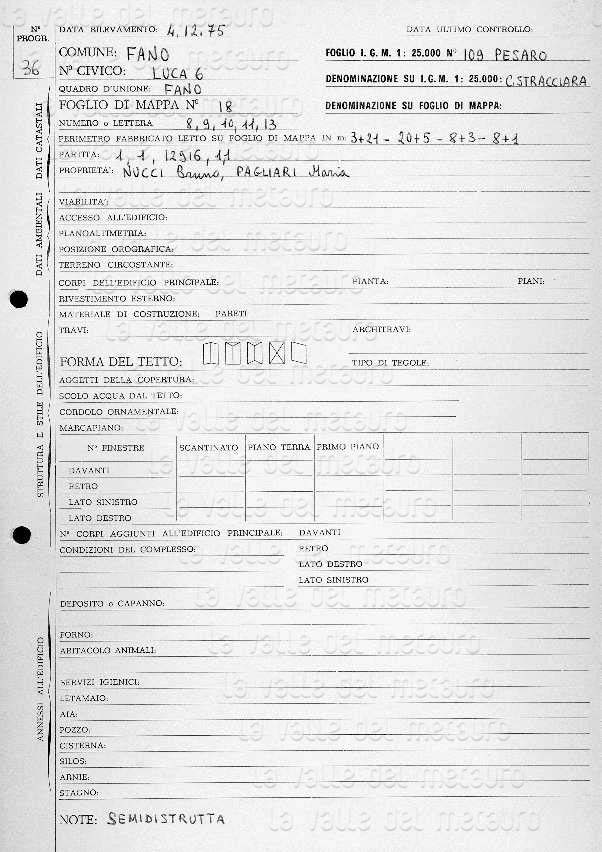 N° PROGR. 36
DATA RILEVAMENTO: 4.12.75 DATA ULTIMO CONTROLLO:
COMUNE: FANO FOGLIO I. G. M. 1: 25.000 N° 109 PESARO
N° CIVICO: LUCA 6 DENOMINAZIONE SU I.G.M. 1: 25.000: C. STRACCIARA
QUADRO D'UNIONE: FANO
FOGLIO DI MAPPA N° 18 DENOMINAZIONE SU FOGLIO DI MAPPA:
NUMERO o LETTERA 8, 9, 10, 11, 13
PERIMETRO FABBRICATO LETTO SU FOGLIO DI MAPPA IN m: 3+21 - 20+5 - 8+3 - 8+1
PARTITA: 1, 1, 12516, 1, 1
PROPRIETA': NUCCI Bruno, PAGLIARI Maria
DATI CATASTALI
VIABILITA':
ACCESSO ALL'EDIFICIO:
PLANOALTIMETRIA:
POSIZIONE OROGRAFICA:
TERRENO CIRCOSTANTE:
DATI AMBIENTALI
CORPI DELL'EDIFICIO PRINCIPALE: PIANTA: PIANI:
RIVESTIMENTO ESTERNO:
MATERIALE DI COSTRUZIONE: PARETI
TRAVI: ARCHITRAVI:
FORMA DEL TETTO: TIPO DI TEGOLE:
AGGETTI DELLA COPERTURA:
SCOLO ACQUA DAL TETTO:
CORDOLO ORNAMENTALE:
MARCAPIANO:
N° FINESTRE SCANTINATO PIANO TERRA PRIMO PIANO
DAVANTI
RETRO
LATO SINISTRO
LATO DESTRO
N° CORPI AGGIUNTI ALL'EDIFICIO PRINCIPALE: DAVANTI
CONDIZIONI DEL COMPLESSO: RETRO
LATO DESTRO
LATO SINISTRO
STRUTTURA E STILE DELL'EDIFICIO
DEPOSITO o CAPANNO:
FORNO:
ABITACOLO ANIMALI:
SERVIZI IGIENICI:
LETAMAIO:
AIA:
POZZO:
CISTERNA:
SILOS:
ARNIE:
STAGNO:
ANNESSI ALL'EDIFICIO
NOTE: SEMIDISTRUTTA
la valle del metauro